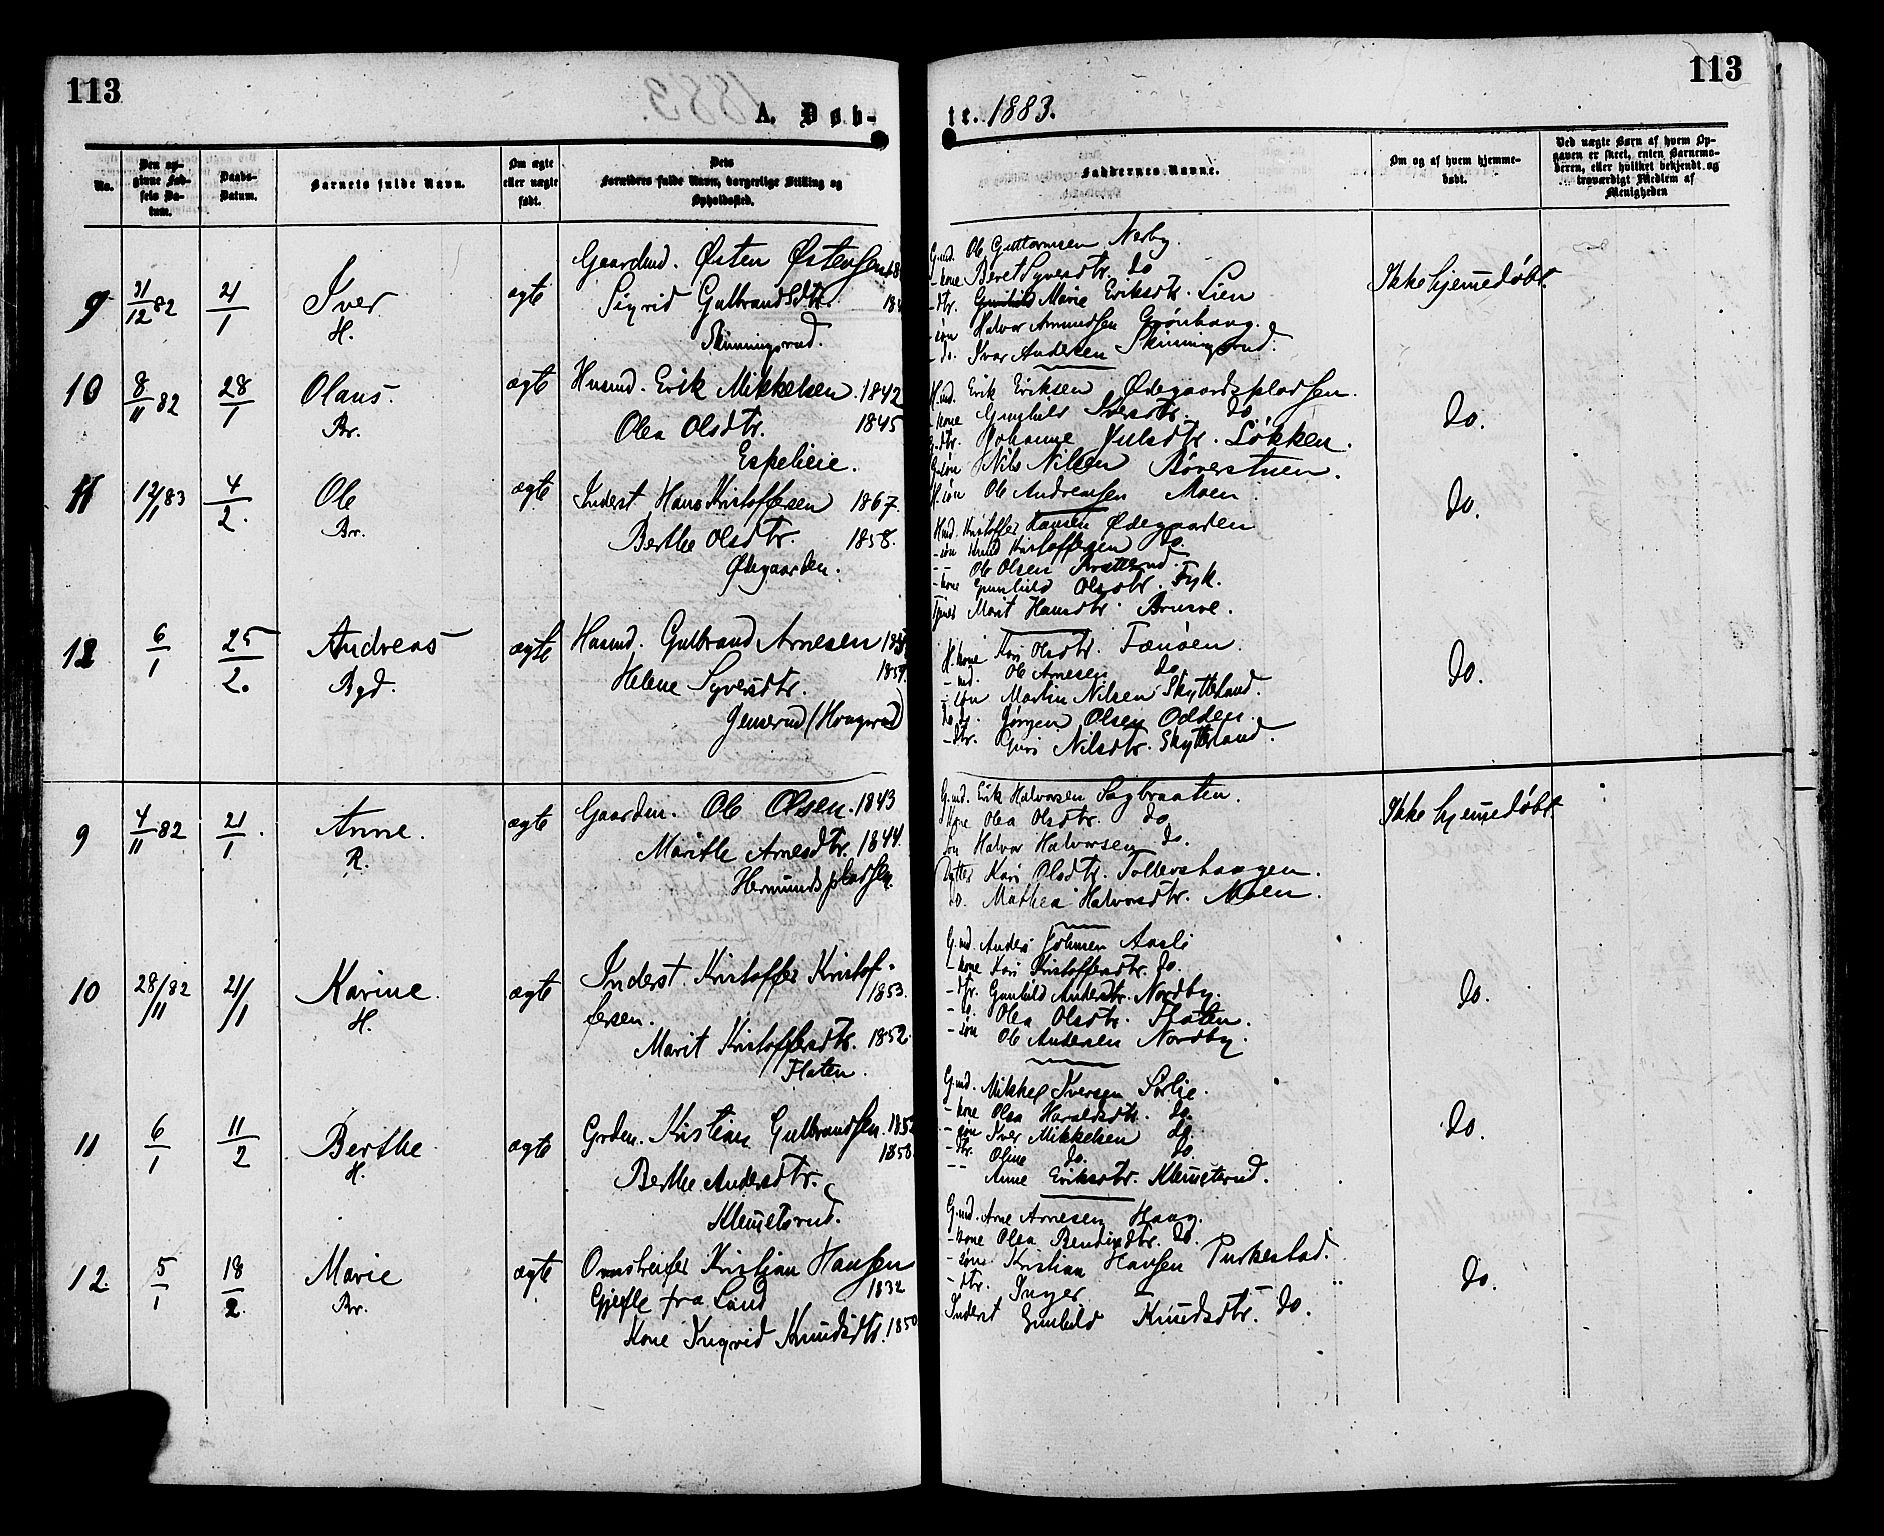 113
A. Døb-
te. 1883.
113
No.
Den op-
givne Fød-
sels Da-
tum.
Daabs-
Datum.
Barnets fulde Navn.
Om ægte
eller uægte
født.
Dets
Forældres fulde Navn, borgerlige Stilling og
Opholdssted.
Faddernes Navne.
Om og af hvem hjemme-
døbt.
Ved uægte Børn af hvem Op-
gaven er skeet, enten Barnemo-
deren, eller hvilket bekjendt og
troværdigt Medlem af
Menigheden
9 31/12 82 21/1 Iver
H.
ægte
Gaardmd. Østen Østensen
Sigrid Gulbrandsdtr.
Skinningsrud.
G.md. Ole Guttormsen Nerby.
- kone Beret Syversdtr. do
- dtr. Marie Eriksdtr. Lien
- søn Halvor Amundsen Grønhaug.
- do. Ivar Andersen Skinningsrud.
Ikke hjemmedøbt.
10 8/11 82 28/1 Olaus
Br.
ægte
Husmd. Erik Mikkelsen. 1842
Olea Olsdtr. 1845
Espelieie.
H.md. Erik Eriksen Ødegaardspladsen.
- kone Gunhild Iversdtr. do
G.dtr. Johanne Julsdtr. Løkken.
G.søn Nils Nilsen Bøverstuen.
H.søn Ole Andreasen Moen.
do.
11 12/1 83 4/2. Ole
Br.
ægte
Inderst Hans Kristoffersen 1867.
Berthe Olsdtr. 1858.
Ødegaarden.
Hmd. Kristoffer Hansen Ødegaarden
- søn Knud Kristoffersen do.
- - Ole Olsen
- kone Gunhild Olsdtr. Fyk.
Marit Hansdtr. Brusve.
do.
12 6/1 25/2. Andreas
Byd.
ægte
Husmd. Gulbrand Arnesen
Helene Syversdtr.
Jenserud (Hougsrud)
H. kone Kari Olsdtr. Fænøen.
- md. Ole Arnesen do.
- søn Martin Nilsen Skytterland.
do Jørgen Olsen Odden.
- dtr. Guri Nilsdtr. Skytterland.
do.
9 4/11 82 21/1. Anne.
R.
ægte
Gaardm. Ole Olsen. 1843
Marithe Arnesdtr. 1844.
Hermundspladsen.
G.md. Erik Halvorsen Sagbraaten.
Kone Olea Olsdtr. do
Søn Halvor Halvorsen do.
Datter Kari Olsdtr. Tollevshaugen.
do. Mathea Halvorsdtr. Moen.
Ikke hjemmedøbt.
10 28/11 82 21/1 Karine.
H.
ægte
Inderst. Kristoffer Kristof-
fersen. 1853.
Marit Kristoffersdtr. 1852.
Flaten.
G.md. Anders Johnsen Aasli
- kone Kari Kristoffersdtr. do.
- dtr. Gunhild Andersdtr. Nordby.
- do. Olea Olsdtr. Flaten.
- søn Ole Andersen Nordby.
do.
11 6/1 11/2 Berthe
H.
ægte
Grdm. Kristian Gulbrandsen. 1852
Berthe Andersdtr. 1850.
Klemetsrud.
G.md. Mikkel Iversen Sørlie.
- kone Olea Haraldsdtr. do.
- søn Iver Mikkelsen do.
- dtr. Oline do. do.
- - Anne Eriksdtr. Klemetsrud.
do.
12. 5/1 18/2. Marie
Br.
ægte
Omstreifer Kristian Hansen
Gjefle fra Land 1832
Kone Ingrid Knudsdtr. 1850
G.md. Arne Arnesen Haug.
- kone Olea Bendixdtr. do.
- søn Kristian Hansen Purkestad.
- dtr. Inger - -
Inderst Gunhild Knudsdtr. do.
do.